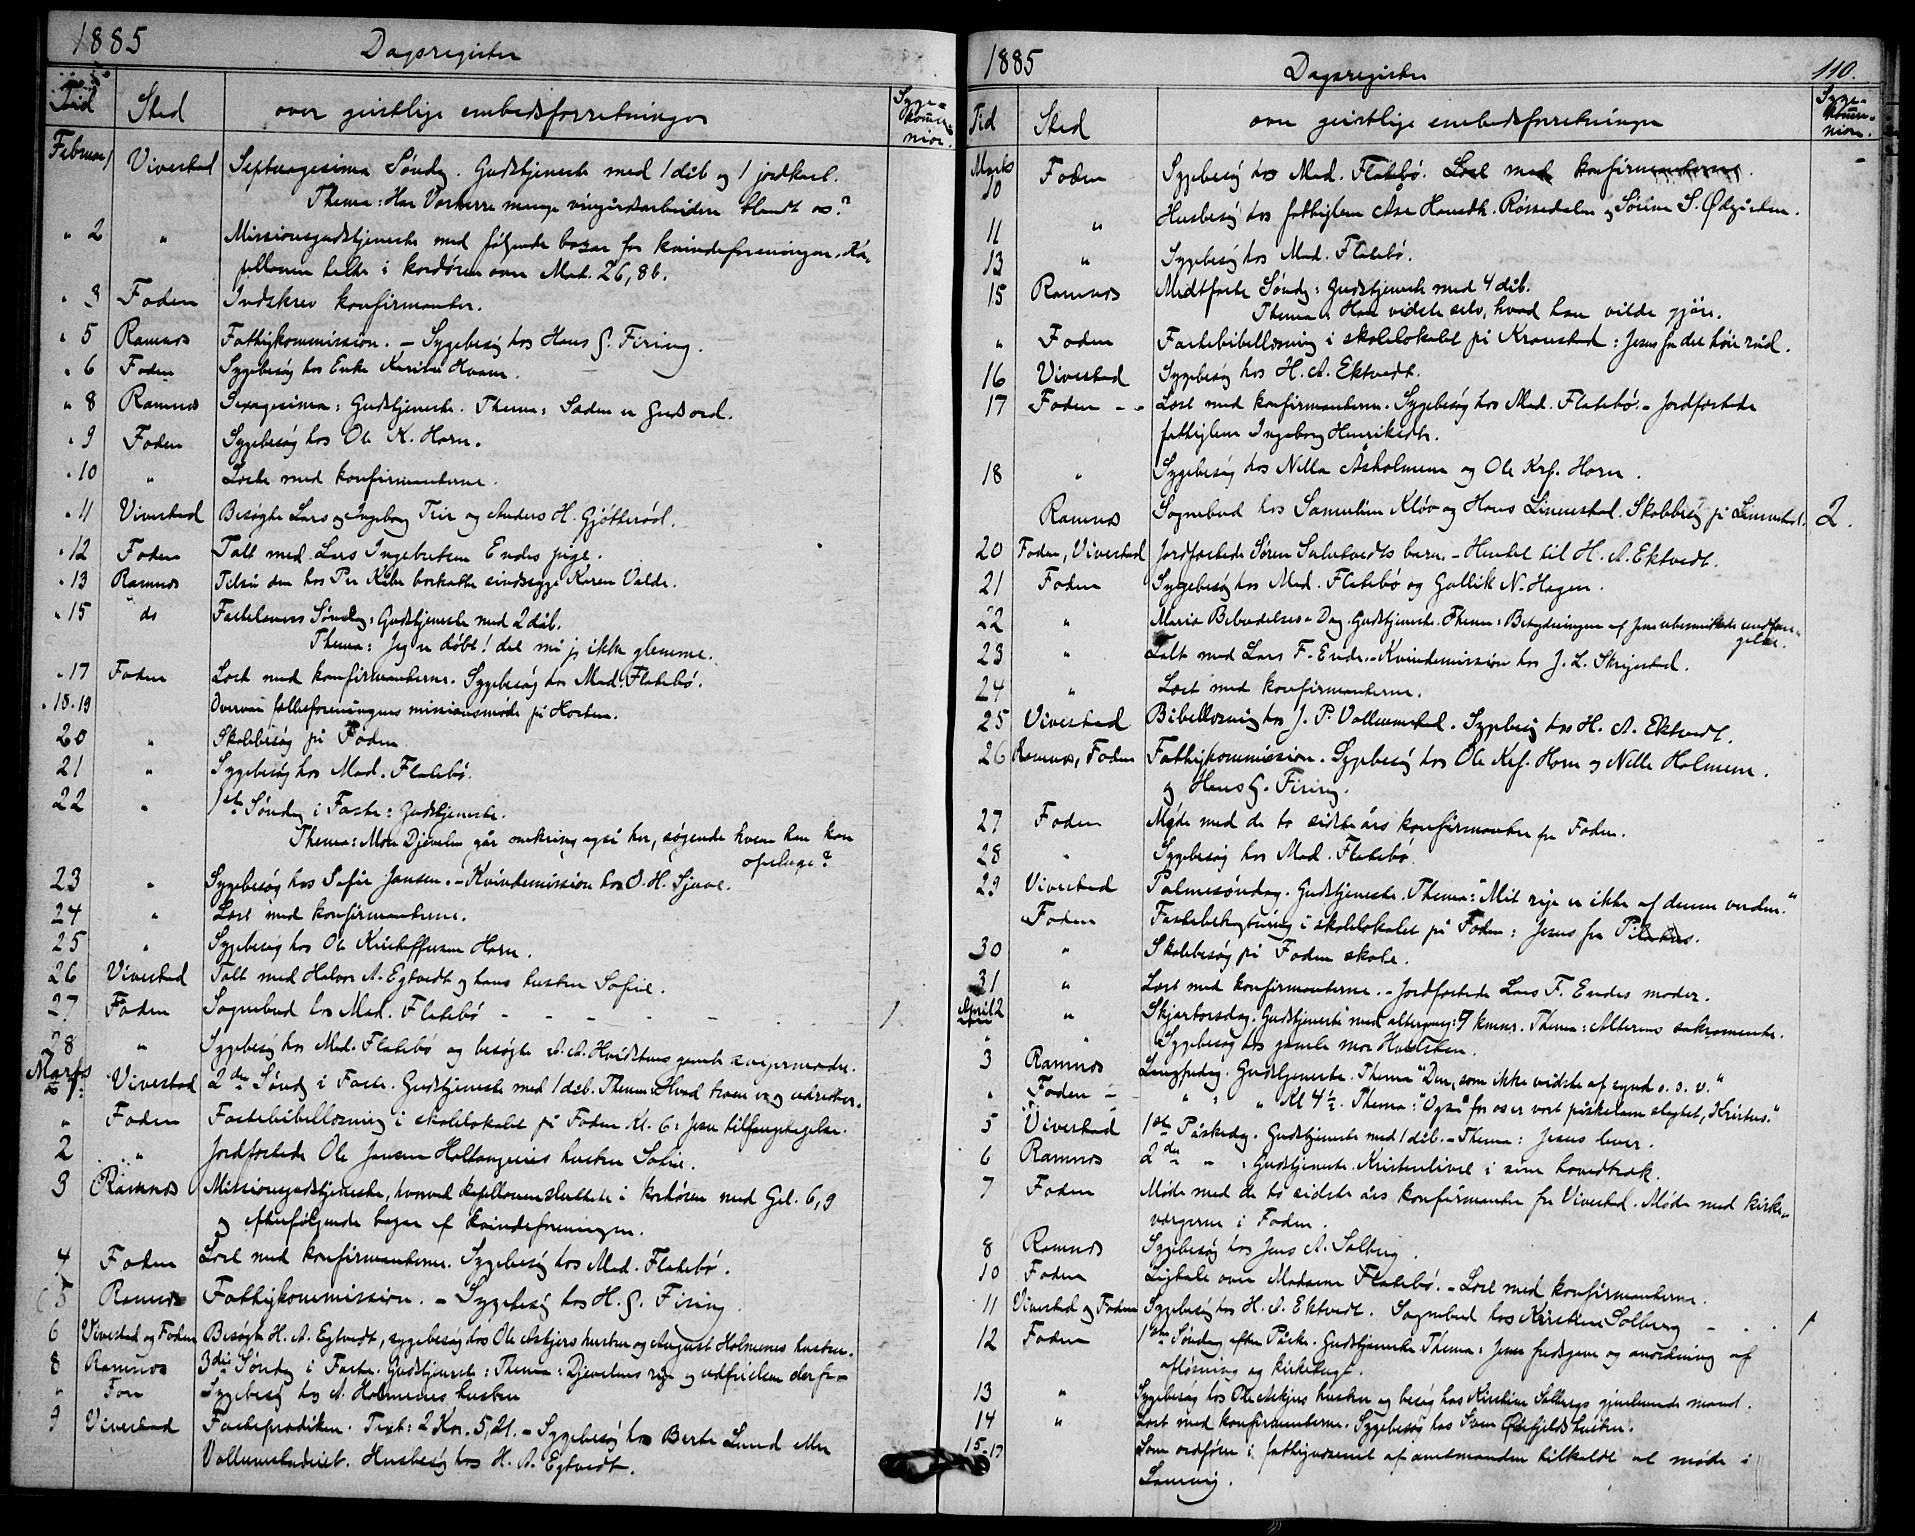 1885
Dagsregister
Tid
Sted
over geistlige embedsforretninger
Syge-
kommu-
nion.
Februar 1
Vivestad
Septuagesima Søndag. Gudstjeneste med 1 dåb og 1 jordkast.
Thema: Har Vorherre mange vingårdsarbeidere blandt os?
" 2
"
Missionsgudstjeneste med følgende bazar for kvindeforeningen. Ka-
pellanen talte i kordøren over Mat. 26, 8 b.
" 3
Foden
Indskrev konfirmanter.
" 5
Ramnes
Fattigkommission. – Sygebesøg hos Hans G. Firing.
" 6
Foden
Sygebesøg hos Enke Karine Hvam.
" 8
Ramnes
Sexagesima: Gudstjeneste. Thema: Sæden er Guds ord.
" 9
Foden
Sygebesøg hos Ole K. Horn.
" 10
"
Læste med konfirmanterne.
" 11
Vivestad
Besøgte Lars og Ingeborg Teir og Anders H. Gjøtterød.
" 12
Foden
Talt med Lars Ingebretsen Endes pige.
" 13
Ramnes
Tilså den hos Per Kjær bortsatte sindssyge Karen Valde.
" 15
do
Fastelavns Søndag: Gudstjeneste med 2 dåb.
Thema: Jeg er døbt! det må jeg ikke glemme.
" 17
Foden
Læst med konfirmanterne. Sygebesøg hos Mad. Flatebø.
" 18-19
Overvar fællesforeningens missionsmøde på Horten.
20
"
Skolebesøg på Foden.
21
"
Sygebesøg hos Mad. Flatebø.
22
"
1ste Søndag i Faste: Gudstjeneste.
Thema: Mon Djævelen går omkring også her, søgende hvem han kan
opsluge?
23
"
Sygebesøg hos Sofie Jansen. – Kvindemission hos O. H. Sjue.
24
"
Læst med konfirmanterne.
25
"
Sygebesøg hos Ole Kristoffersen Horn.
26
Vivestad
Talt med Halvor A. Egtvedt og hans hustru Sofie.
27
Foden
Sognebud hos Mad. Flatebø – – – – – –
1
28
"
Sygebesøg hos Mad. Flatebø og besøgte A. A. Hvidstens gamle svigermoder.
Marts
1.
Vivestad
2den Søndag i Faste. Gudstjeneste med 1 dåb. Thema: Hvad troen er og udretter.
"
Foden
Fastebibellæsning i skolelokalet på Foden Kl. 6: Jesu tilfangetagelse.
2
"
Jordfæstede Ole Jansen Holtangenes hustru Sofie.
3
Ramnes
Missionsgudstjeneste, hvorved kapellanen sluttede i kordøren med Gal. 6, 9
og efterfølgende bazar af kvindeforeningen.
4
Foden
Læst med konfirmanterne. Sygebesøg hos Mad. Flatebø.
5
Ramnes
Fattigkommission. – Sygebesøg hos H. G. Firing.
6
Vivestad og Foden
Besøgte H. A. Egtvedt, sygebesøg hos Ole Askjers hustru og August Holmenes hustru.
8
Ramnes
3die Søndag i Faste. Gudstjeneste: Thema: Djævelens rige og udfrielsen derfra
"
Foden
Sygebesøg hos A. Holmenes hustru
9
Vivestad
Fasteprædiken. Text: 2 Kor. 5, 21. – Sygebesøg hos Berte Lund eller
Vollumstadeiet. Husbesøg hos H. A. Egtvedt.
1885
Dagsregister
110.
Tid
Sted
over geistlige embedsforretninger
Syge-
kommu-
nion.
Marts
10
Foden
Sygebesøg hos Mad. Flatebø. Læst med konfirmanterne.
11
"
Husbesøg hos fattiglem Åse Hansdtr. Røssedalen og Søren S. Ødegården.
13
"
Sygebesøg hos Mad. Flatebø.
15
Ramnes
Midtfaste Søndag: Gudstjeneste med 4 dåb.
Thema: Han vidste selv, hvad han vilde gjøre.
"
Foden
Fastebibellæsning i skolelokalet på Kronstad: Jesus for det høie råd.
16
Vivestad
Sygebesøg hos H. A. Ektvedt.
17
Foden – –
Læst med konfirmanterne. Sygebesøg hos Mad. Flatebø. – Jordfæstede
fattiglem Ingeborg Henriksdtr.
18
"
Sygebesøg hos Nella Åsholmene og Ole Krf. Horn.
Ramnes
Sognebud hos Samueline Kløv og Hans Linnestad. Skolebesøg på Linnestad.
2.
20
Foden, Vivestad
Jordfæstede Søren Sulutvedts barn. – Hentet til H. A. Ektvedt.
21
Foden
Sygebesøg hos Mad. Flatebø og Gullik N. Hagen.
22
"
Maria Bebudelses-Dag. Gudstjeneste. Thema: Betydningen af Jesu ubesmittede undfan-
gelse.
23
"
Talt med Lars F. Ende. – Kvindemission hos J. L. Skrigestad.
24
"
Læst med konfirmanterne.
25
Vivestad
Bibellæsning hos J. P. Vollumstad. Sygebesøg hos H. A. Ektvedt.
26
Ramnes, Foden
Fattigkommission. Sygebesøg hos Ole Krf. Horn og Nille Holmene.
og Hans G. Firing.
27
Foden
Møde med de to sidste års konfirmanter fra Foden.
28
"
Sygebesøg hos Mad. Flatebø
29
Vivestad
Palmesøndag. Gudstjeneste. Thema: "Mit rige er ikke af denne verden."
"
Foden
Fastebetragtning i skolelokalet på Foden: Jesus for Pilatus.
30
"
Skolebesøg på Foden skole.
31
"
Læst med konfirmanterne. – Jordfæstede Lars F. Endes moder.
April 2
"
Skjærtorsdag. Gudstjeneste med altergang: 9 kmnr. Thema: Alterens sakramente.
"
"
Sygebesøg hos gamle mor Hvidsten.
3
Ramnes
Langfredag. Gudstjeneste. Thema "Den, som ikke vidste af synd o. s. v."
"
Foden –
" " " Kl 4½. Thema: "Også for os er vort påskelam slagtet, Kristus."
5
Vivestad
1ste Påskedag. Gudstjeneste med 1 dåb. – Thema: Jesus lever.
6
Ramnes
2den " : Gudstjeneste. Kristenlivet i sine hovedtræk.
7
Foden
Møde med de to sidste års konfirmanter fra Vivestad. Møde med kirke-
værgerne i Foden.
8
Ramnes
Sygebesøg hos Jens A. Solberg.
10
Foden
Ligtale over Madame Flatebø. – Læst med konfirmanterne.
11
Vivestad og Foden
Sygebesøg hos H. A. Ektvedt. Sognebud hos Kirstine Solberg – . .
1
12
Foden
1ste Søndag efter Påske. Gudstjeneste Thema: Jesu fredsgave og anordning af
afløsning og kirketugt.
13
"
Sygebesøg hos Ole Askjers hustru og besøg hos Kirstine Solbergs gjenlevende mand.
14
"
Læst med konfirmanterne. Sygebesøg hos Sven Ødefjelds hustru.
15-17
Som ordfører i fattigvæsenet af amtmanden tilkaldt at møde i
Laurvig.